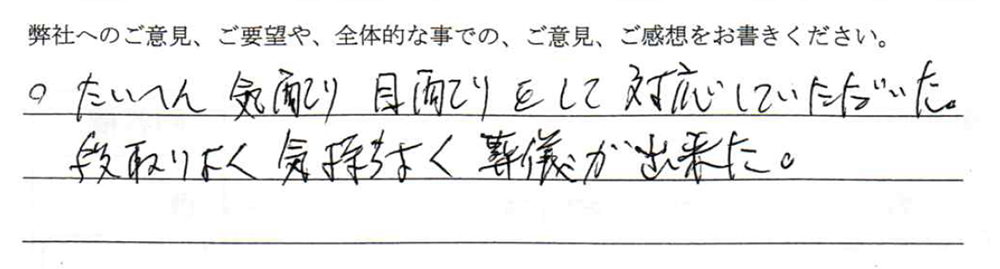 弊社へのご意見、ご要望や、全体的な事での、ご意見、ご感想をお書きください。
○ たいへん 気配り 目配りをして 対応していただいた。
段取りよく 気持ちよく 葬儀が出来た。